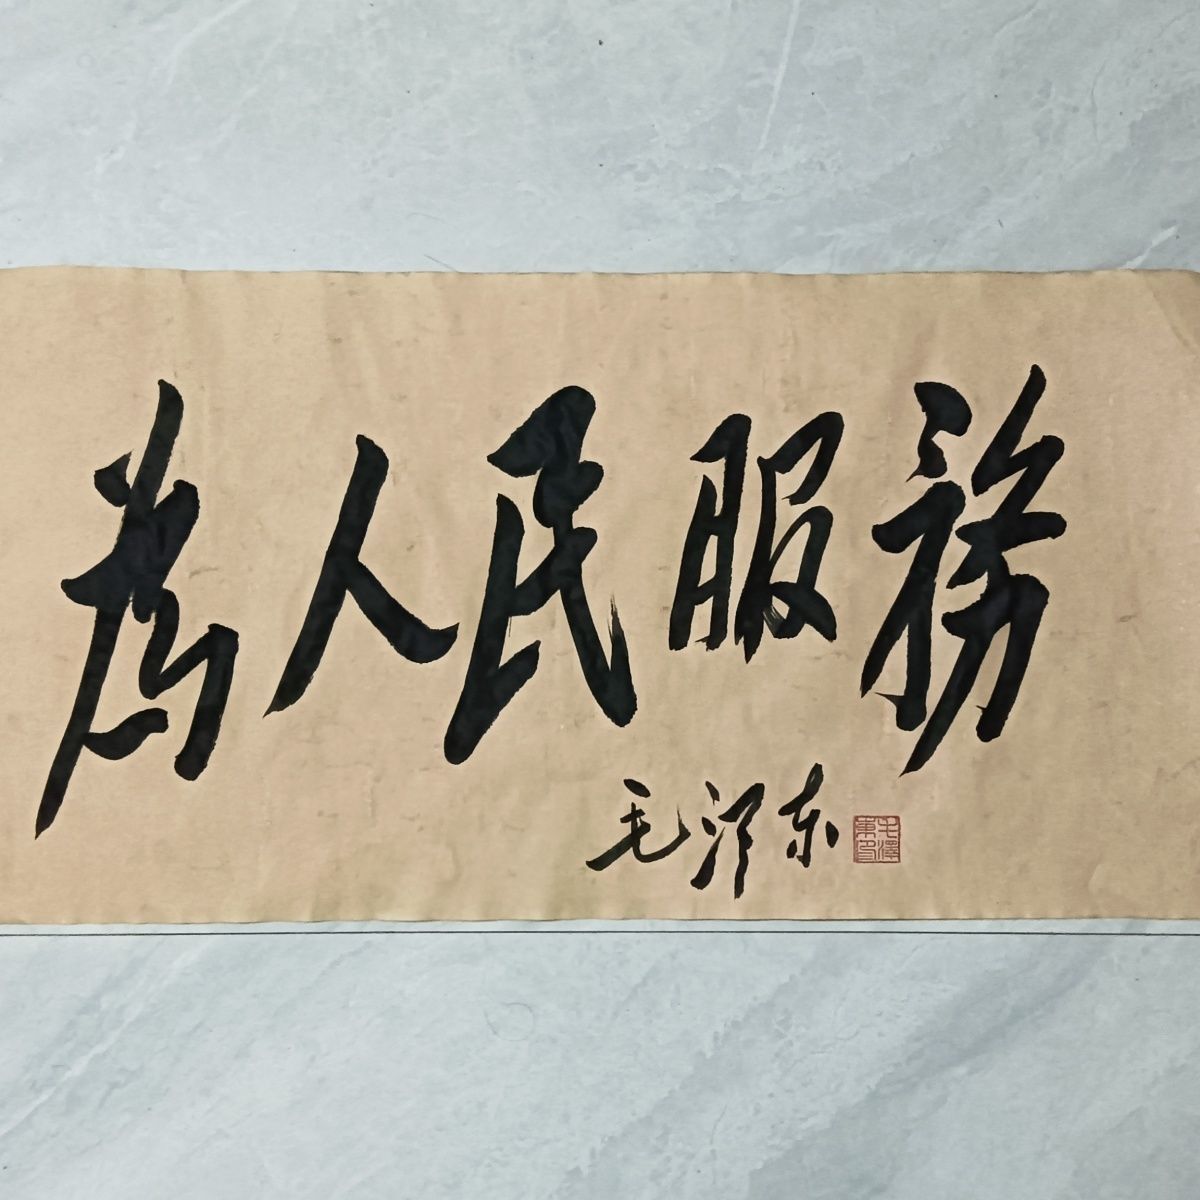 为人民服務
毛泽东
毛澤東印